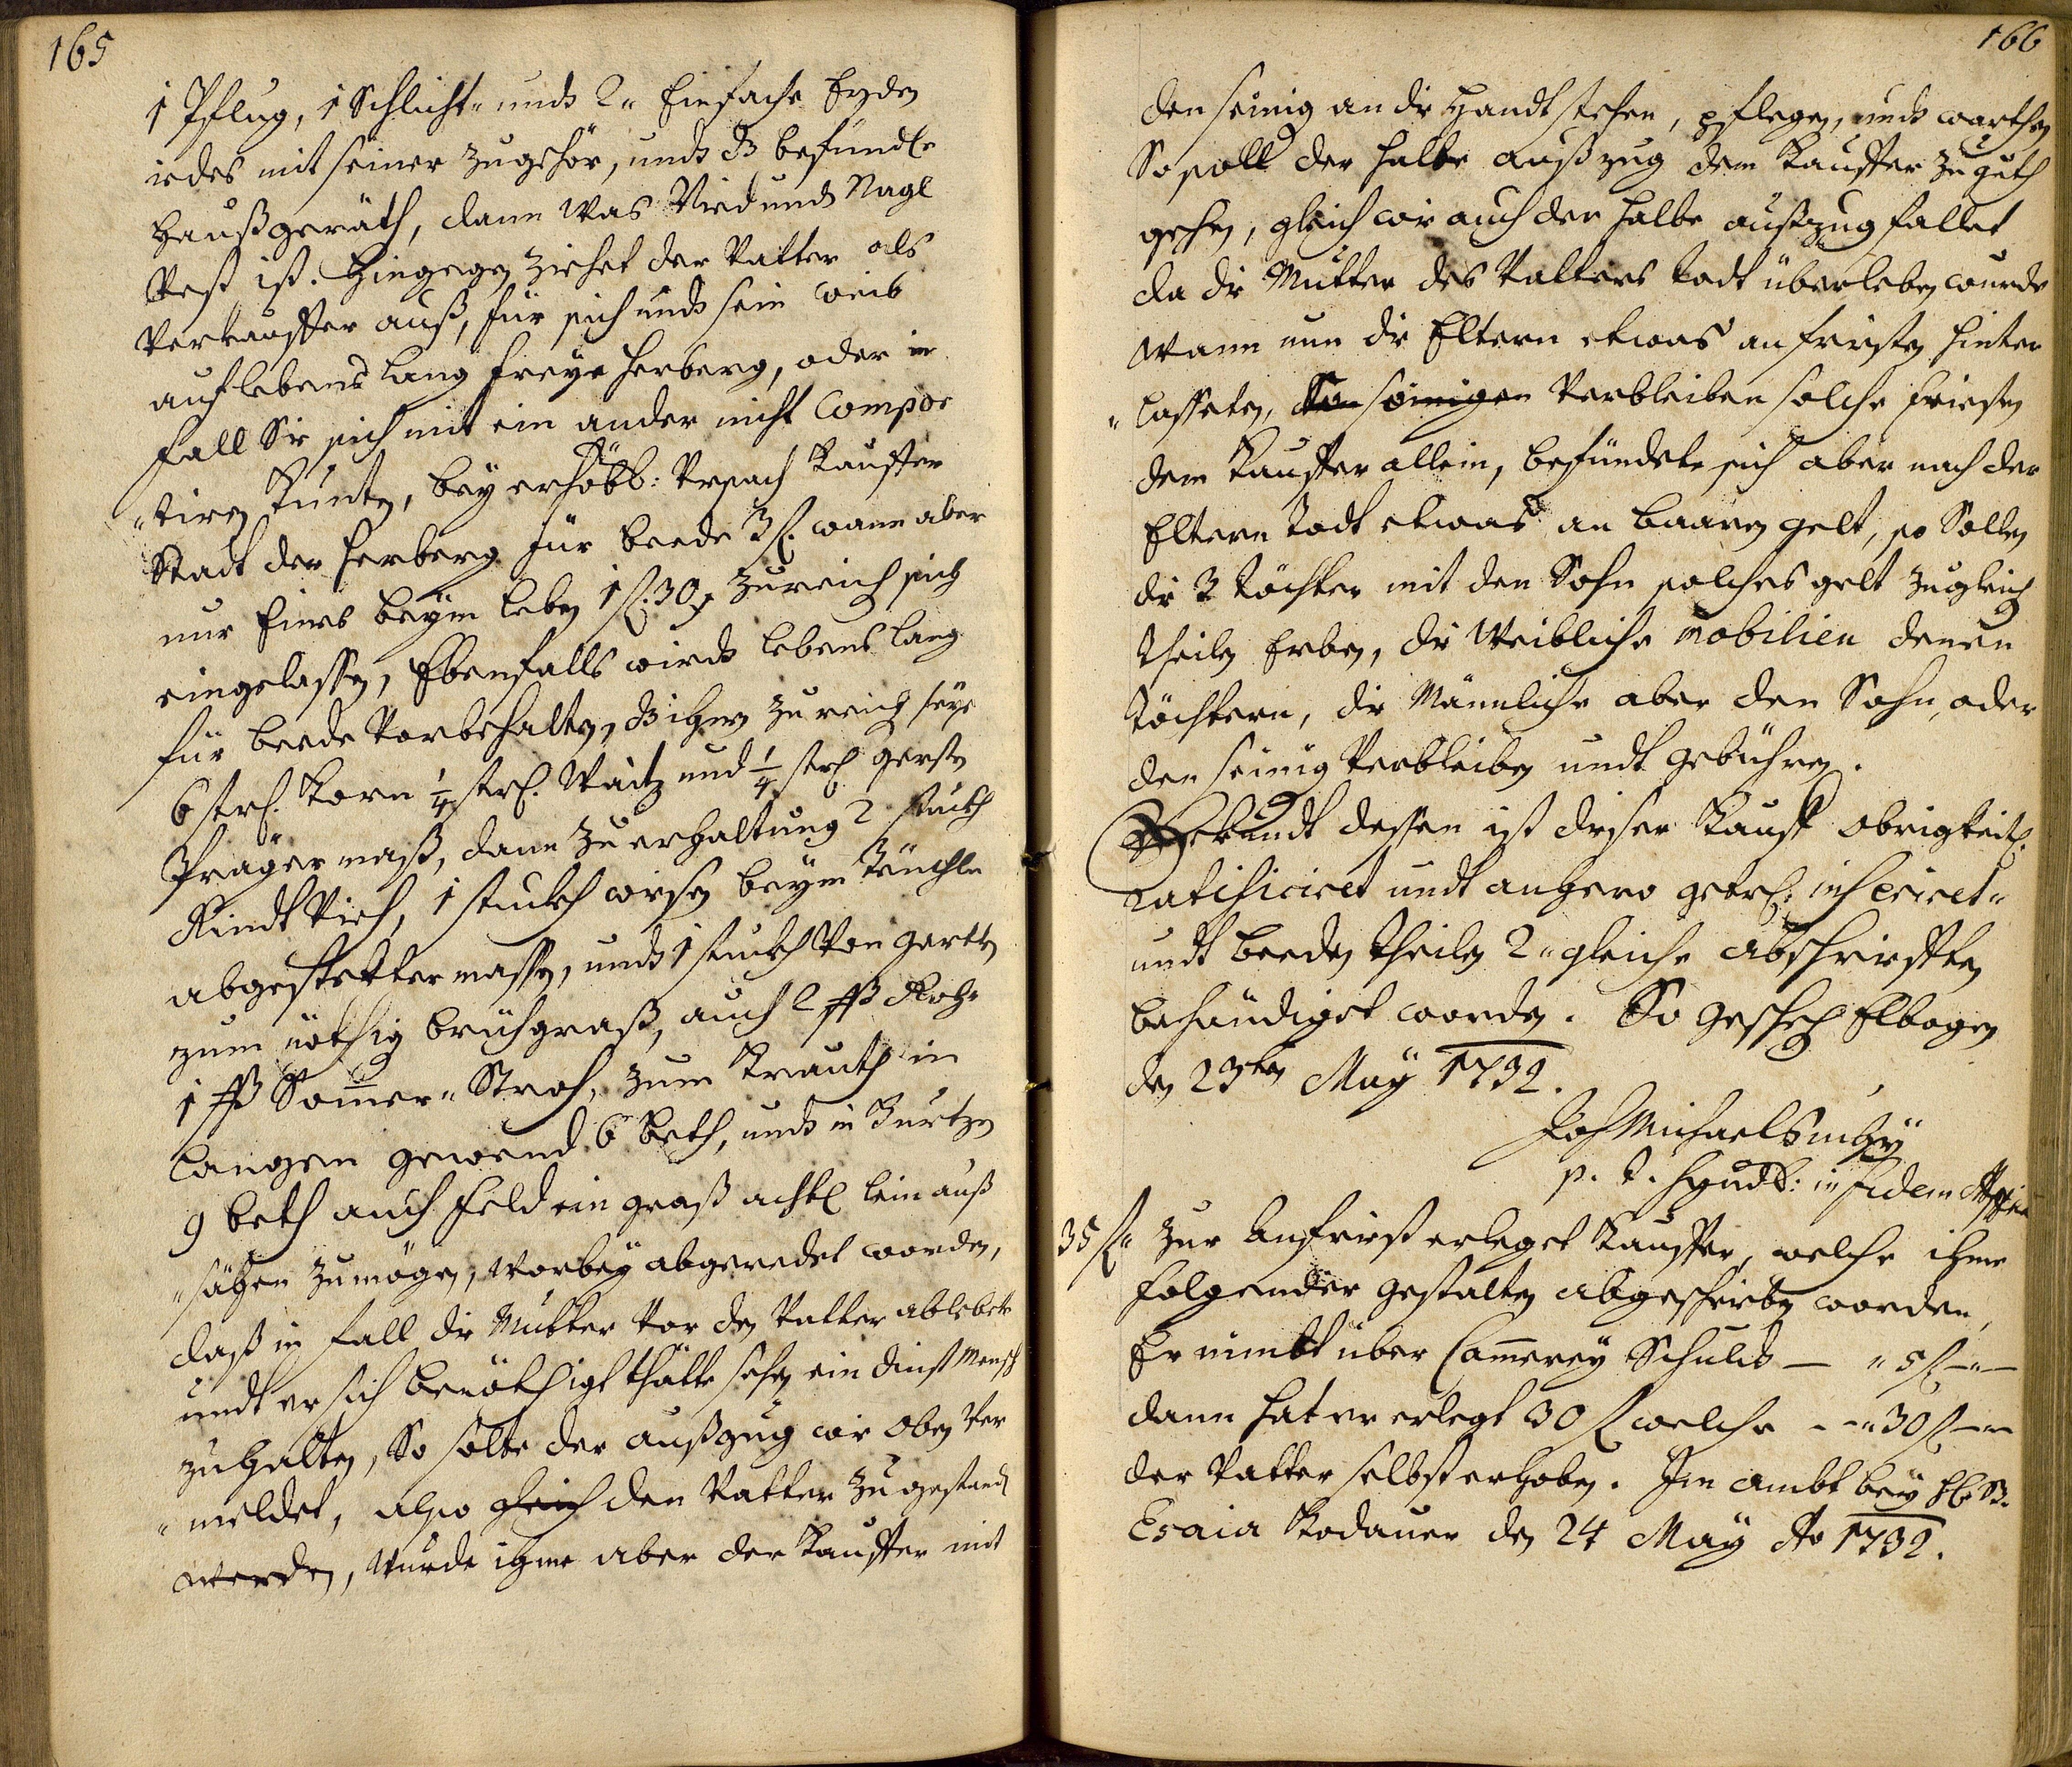 165
1 Pflug, 1 Schlicht- undt 2 " Einfache Eyden
iedes mit seiner zugehör, undt ds befündl.
Haußgeräth, dann Was Niedt undt Nagl
Vest ist. Hingegen ziehet der Vatter als
Verkauffer auß, für sich undt sein weib
auf lebens lang freye Herberg, oder in
fall Sie sich mit ein ander nicht Compor
"tiren kunten, bey erhöbb: Vrsach Kauffer
Statt der Herberg für beede 3 f. wann aber
nur Eines beym leben 1 f. 30 x zureich sich
eingelassen, Ebenfalls wirdt lebens lang
für beede Vorbehalten, ds ihnen zu reich seye
6 strh. Korn 1/4 strh. Waitz und 1/4 strh gersten
Prager maß, dann zu erhaltung 2 stuckh
Rindt Vieh, 1 stuckh wisen beym Teuchle
abgesteckter massen, undt 1 stuckh Von garten
zum nöthig brühgraß, auch 2 ßß Roh-
1 ßß Som̄er " Stroh, zum Krauth in
langem gewend 6 beth, undt in Kurtzen
9 beth auch Feld ein graß achtl lein auß
"sähen zu mögen, worbey abgeredet worden,
daß in fall die Mutter Vor den Vatter ablebete
undt er sich benöthigt hätte sehen ein dinst Mensch
zuhalten, So solte der außzug wie oben Ver
"meldet, also gleich den Vatter zu gestandt
werden, wurde ihme aber der Kauffer mit
166
den seinig an die Handt stehen, pflegen, undt warthen
So soll der halbe außzug dem Kauffer zu guth
gehen, gleich wie auch der halbe außzug fallet
da die Mutter des Vatters todt überleben wurde
Wann nun die Eltern etwas an fristen hinter
"lasseten, seinigen Verbleiben solche friesten
dem Kauffer allein, befündete sich aber nach der
Eltern todt etwas an baaren gelt, so Sollen
die 3 töchter mit den Sohn solches gelt zugleich
theilen Erben, die Weibliche mobilien denen
töchtern, die Männliche aber den Sohn, oder
den seinig Verbleiben undt gebühren.
Uhrkundt dessen ist dieser Kauff obrigkeitl.
ratificiret undt anhero getrl: inseriret "
undt beeden theilen 2 " gleiche abschriefften
behändiget worden. So geschech Elbogen
den 23ten May 1732.
Joh Michael
p. t. Syndt: in fidem
35 f " Zur Anfrist erleget Kauffer, welche ihme
folgender gestalten abgeschrieben worden,
Er nimbt über Cam̄erey Schuldt — " 5 f — " —
dann hat er erlegt 30 f welche - - " 30 f — " —
der Vatter selbst erhoben. Im ambt bey H. B.
Esaia Kodauer den 24 May Ao 1732.